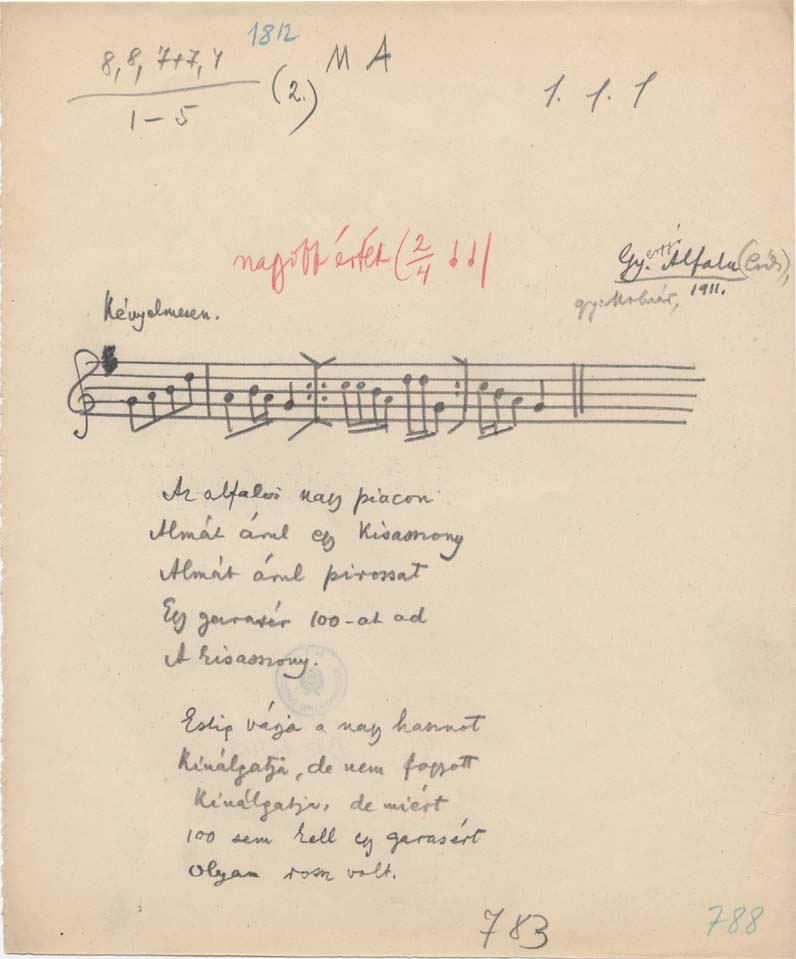 8, 8, 7+7, 4
1812
M A
1 – 5
(2.)
1. 1. 1
nagobb érték (2/4
Gy. Alfalu
gy: Molnár, 1911.
Kényelmesen.
Az alfalvi nagy piacon
Almát árul egy kisasszony
Almát árul pirossat
Egy garasér 100-at ad
A kisasszony.
Estig várja a nagy hasznot
Kinálgatja, de nem fogyott
Kinálgatja, de miért
100 sem kell egy garasért
Olyan rossz volt.
783
788